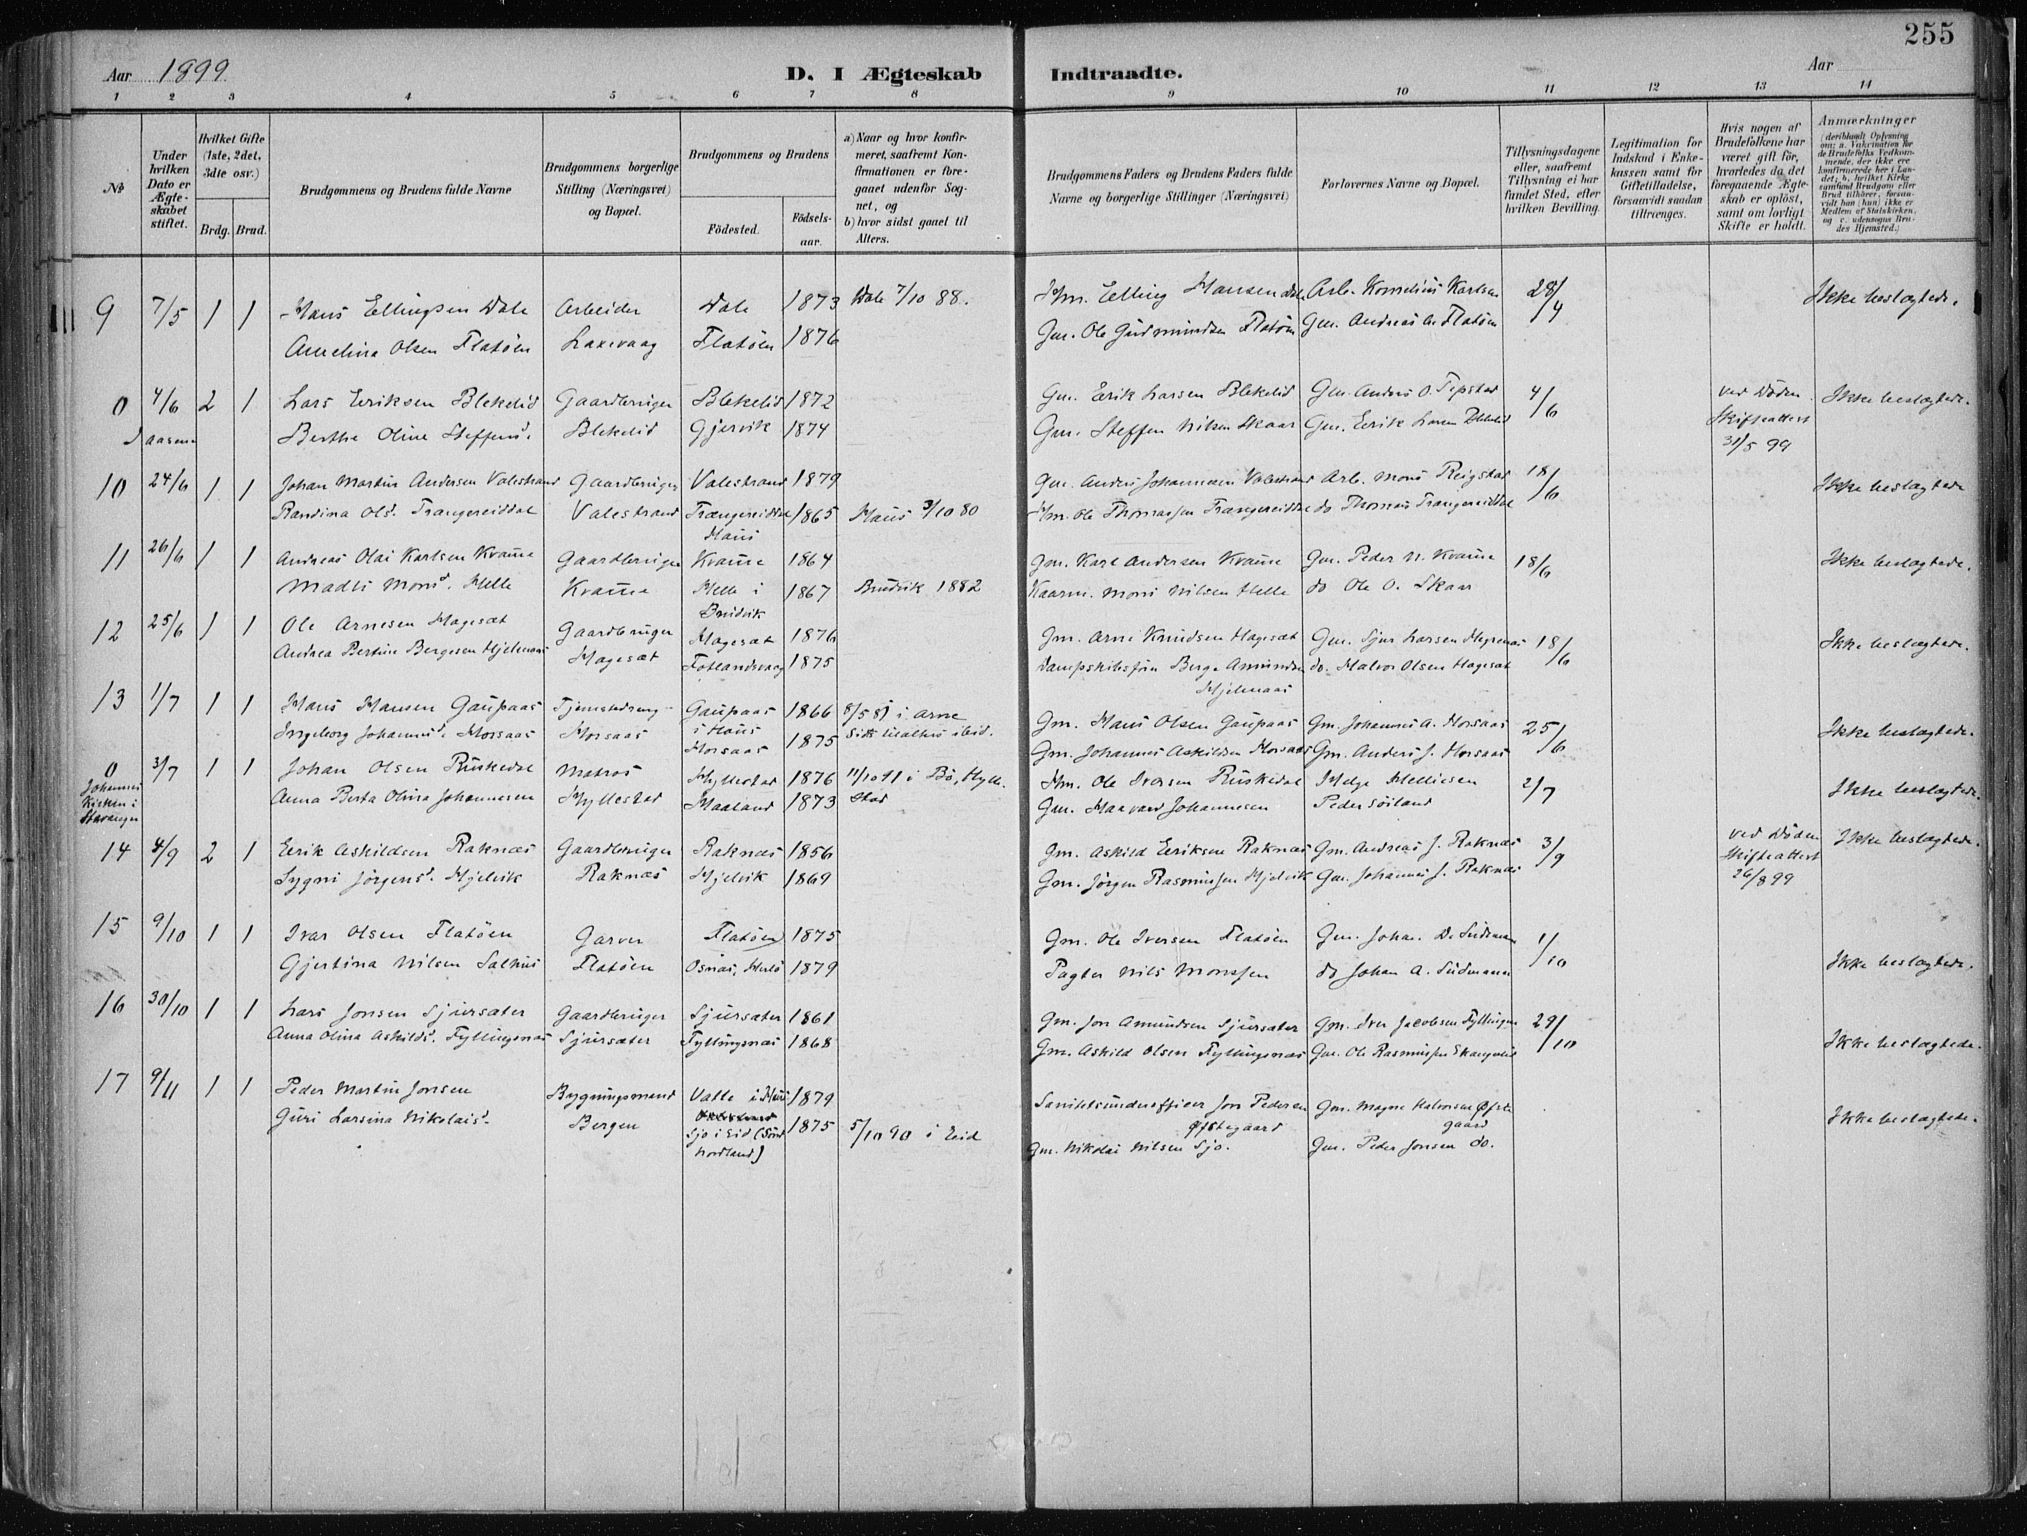 255
Aar 1899
D. I Ægteskab Indtraadte.
Aar
1 2 3 4 5 6 7 8 9 10 11 12 13 14
№
Under hvilken Dato er Ægteskabet stiftet.
Hvilket Gifte (1ste, 2det, 3die osv.)
Brdg. Brud.
Brudgommens og Brudens fulde Navne
Brudgommens borgerlige Stilling (Næringsvei) og Bopæl.
Brudgommens og Brudens
Födested.
Födsels-aar.
a) Naar og hvor konfirmeret, saafremt Konfirmationen er foregaaet udenfor Sognet, og
b) hvor sidst gaaet til Alters.
Brudgommens Faders og Brudens Faders fulde Navne og borgerlige Stillinger (Næringsvei)
Forlovernes Navne og Bopæl.
Tillysningsdagene eller, saafremt Tillysning ei har fundet Sted, efter hvilken Bevilling.
Legitimation for Indskud i Enkekassen samt for Giftetilladelse, forsaavidt saadan tiltrænges.
Hvis nogen af Brudefolkene har været gift för, hvorledes da det foregaaende Ægteskab er oplöst, samt om lovligt Skifte er holdt.
Anmærkninger
(deriblandt Oplysning om: a. Vakcination for de Brudefolks Vedkommende, der ikke ere konfirmerede her i Landet; b. hvilket Kirkesamfund Brudgom eller Brud tilhörer, forsaavidt han (hun) ikke er Medlem af Statskirken, og c. udensogns Brudes Hjemsted.)
9 7/5 1 1 Hans Ellingsen Dale Arbeider Dale 1873 Dale 7/10 88. Hm. Elling Hansen Dale Arb. Kornelius Karlsen 28/4 Ikke beslægtede.
Amelina Olsen Flatöen Laxevaag Flatöen 1876 Gm. Ole Gudmundsen Flatöen Gm. Andreas A. Flatöen
0 4/6 2 1 Lars Eriksen Blekelid Gaardbruger Blekelid 1872 Gm. Erik Larsen Blekelid Gm. Anders O. Tepstad 4/6 ved Döden Ikke beslægtede.
Berthe Oline Steffensd. Blekelid Gjervik 1874 Gm. Steffen Nilsen Skaar Gm. Erik Larsen Blekelid Skifteattest
31/5 99
10 24/6 1 1 Johan Martin Andersen Valestrand Gaardbruger Valestrand 1879 Gm. Anders Johannesen Valestrand Arb. Mons Reigstad 18/6 Ikke beslægtede
Randina Olsd. Trangereiddet Valestrand Trængereidet 1865 Haus 3/10 80 Hm. Ole Thomassen Trængereiddet do Thomas Trangereiddet
Haus
11 26/6 1 1 Andreas Olai Karlsen Kvamme Gaardbruger Kvamme 1864 Gm. Karl Andersen Kvamme Gm. Peder N. Kvamme 18/6 Ikke beslægtede.
Madli Monsd. Helle Kvamme Helle i 1867 Bruvik 1882 Kaarm. Mons Nilsen Helle do Ole O. Skaar
Bruvik
12 25/6 1 1 Ole Arnesen Hagesæt Gaardbruger Hagesæt 1876 Gm. Arne Knudsen Hagesæt Gm. Sjur Larsen 18/6 Ikke beslægtede.
Andrea Bertine Bergesen Hjelmaas Hagesæt Fotlandsvaag 1875 Dampskibsför. Berge Amundsen do. Halvor Olsen Hagesæt
Hjelmaas
13 1/7 1 1 Hans Hansen Gaupaas Gaupaas 1866 8/5 81 i Arne Gm. Hans Olsen Gaupaas Gm. Johannes A. Horsaas 25/6 Ikke beslægtede.
Ingeborg Johannesd. Horsaas Horsaas i Haus
Horsaas 1875 Gm. Johannes Askildsen Horsaas Gm. Anders J. Horsaas
0 3/7 1 1 Johan Olsen Ruskedal Matros Hyllestad 1876 11/10 91 i Bö, Hylle- Hm. Ole Iversen Ruskedal Helge Helliesen 2/7 Ikke beslægtede.
Johannes Kirken i Stavanger Anna Berta Olina Johannesen Hyllestad Haaland 1873 stad Gm. Haavard Johannesen Peder Söiland
14 4/9 2 1 Erik Askildsen Raknæs Gaardbruger Raknæs 1856 Gm. Askild Eriksen Raknæs Gm. Andreas J. Raknæs 3/9 ved Döden Ikke beslægtede.
Sygni Jörgensd. Hjelvik Raknæs Hjelvik 1869 Gm. Jörgen Rasmussen Hjelvik Gm. Johannes J. Raknæs Skifteattest
26/8 99
15 9/10 1 1 Ivar Olsen Flatöen Garver Flatöen 1875 Gm. Ole Iversen Flatöen Gm. Johan D. Sudmann 1/10 Ikke beslægtede.
Gjertina Nilsen Salhus Flatöen Osnæs, Herlö 1879 Pagter Nils Monssen do Johan A. Sudmann
16 30/10 1 1 Lars Jonsen Sjursæter Gaardbruger Sjursæter 1861 Gm. Jon Amundsen Sjursæter Gm. Iver Jacobsen Fyllingen 29/10 Ikke beslægtede.
Anna Olina Askildsd. Fyllingsnæs Sjursæter Fyllingsnæs 1868 Gm. Askild Olsen Fyllingsnæs Gm. Ole Rasmussen
17 9/11 1 1 Peder Martin Jonsen Bygningsmand Valle i Haus 1879 Sanitetsunderofficer Jon Pedersen Gm. Magne Halvorsen Øfste- Ikke beslægtede.
Guri Larsina Nikolaisd. Bergen Sjo i Eid (Sönd- 1875 5/10 90 i Eid Øfstegaard gaard
nordland) Gm. Nikolai Nilsen Sjo. Gm. Peder Jonsen do.